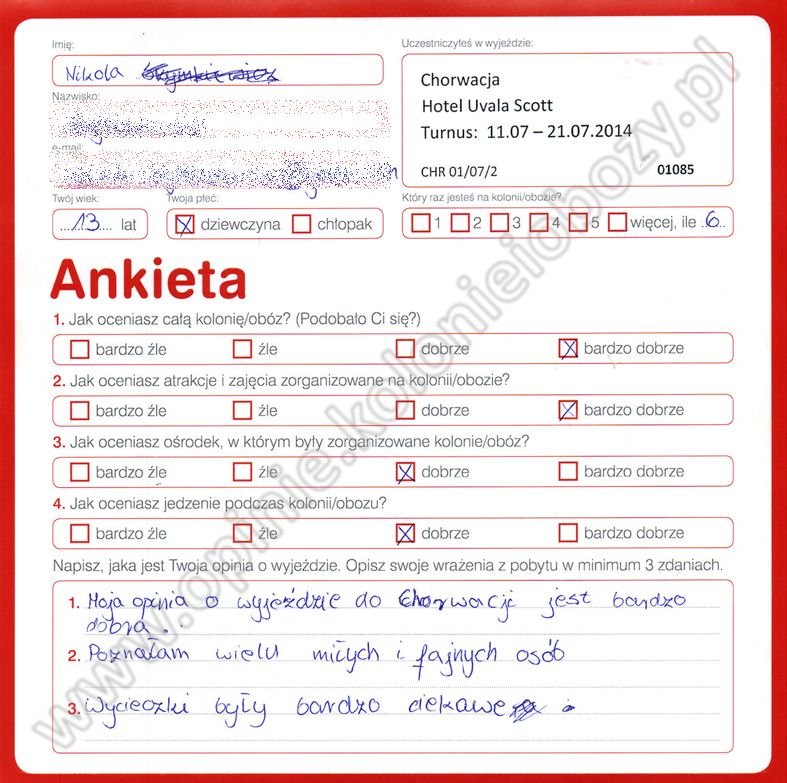 Imię:
Nikola
Nazwisko:
e-mail:
Twój wiek:
...13.... lat
Twoja płeć:
dziewczyna chłopak
Uczestniczyłeś w wyjeździe:
Chorwacja
Hotel Uvala Scott
Turnus: 11.07 – 21.07.2014
CHR 01/07/2 01085
Który raz jesteś na kolonii/obozie?
1 2 3 4 5 więcej, ile ..6..
Ankieta
1. Jak oceniasz całą kolonię/obóz? (Podobało Ci się?)
bardzo źle źle dobrze bardzo dobrze
2. Jak oceniasz atrakcje i zajęcia zorganizowane na kolonii/obozie?
bardzo źle źle dobrze bardzo dobrze
3. Jak oceniasz ośrodek, w którym były zorganizowane kolonie/obóz?
bardzo źle źle dobrze bardzo dobrze
4. Jak oceniasz jedzenie podczas kolonii/obozu?
bardzo źle źle dobrze bardzo dobrze
Napisz, jaka jest Twoja opinia o wyjeździe. Opisz swoje wrażenia z pobytu w minimum 3 zdaniach.
1. Moja opinia o wyjeździe do Chorwacji jest bardzo
dobra..
2. Poznałam wielu miłych i fajnych osób
3. Wycieczki były bardzo ciekawe .
www.opinie.kolonieiobozy.pl